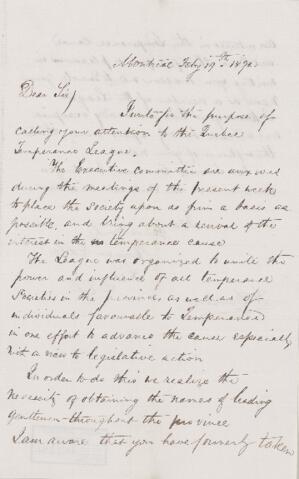 Montreal Feby 19th 187
Dear Sir
I write for the purpose of
calling your attention to the Quebec
Temperance League.
The Executive committee are anxious
during the meetings of the present week
to place the society upon as firm a basis as
possible, and bring about a revival of the
interest in the temperance cause
The League was organized to unite the
power and influence of all temperance
Societies in the province as well as of
individuals favourable to Temperance
in one effort to advance the cause especially
with a view to legislative action
In order to do this we realize the
necessity of obtaining the names of leading
gentlemen throughout the province
I am aware that you have formerly taken